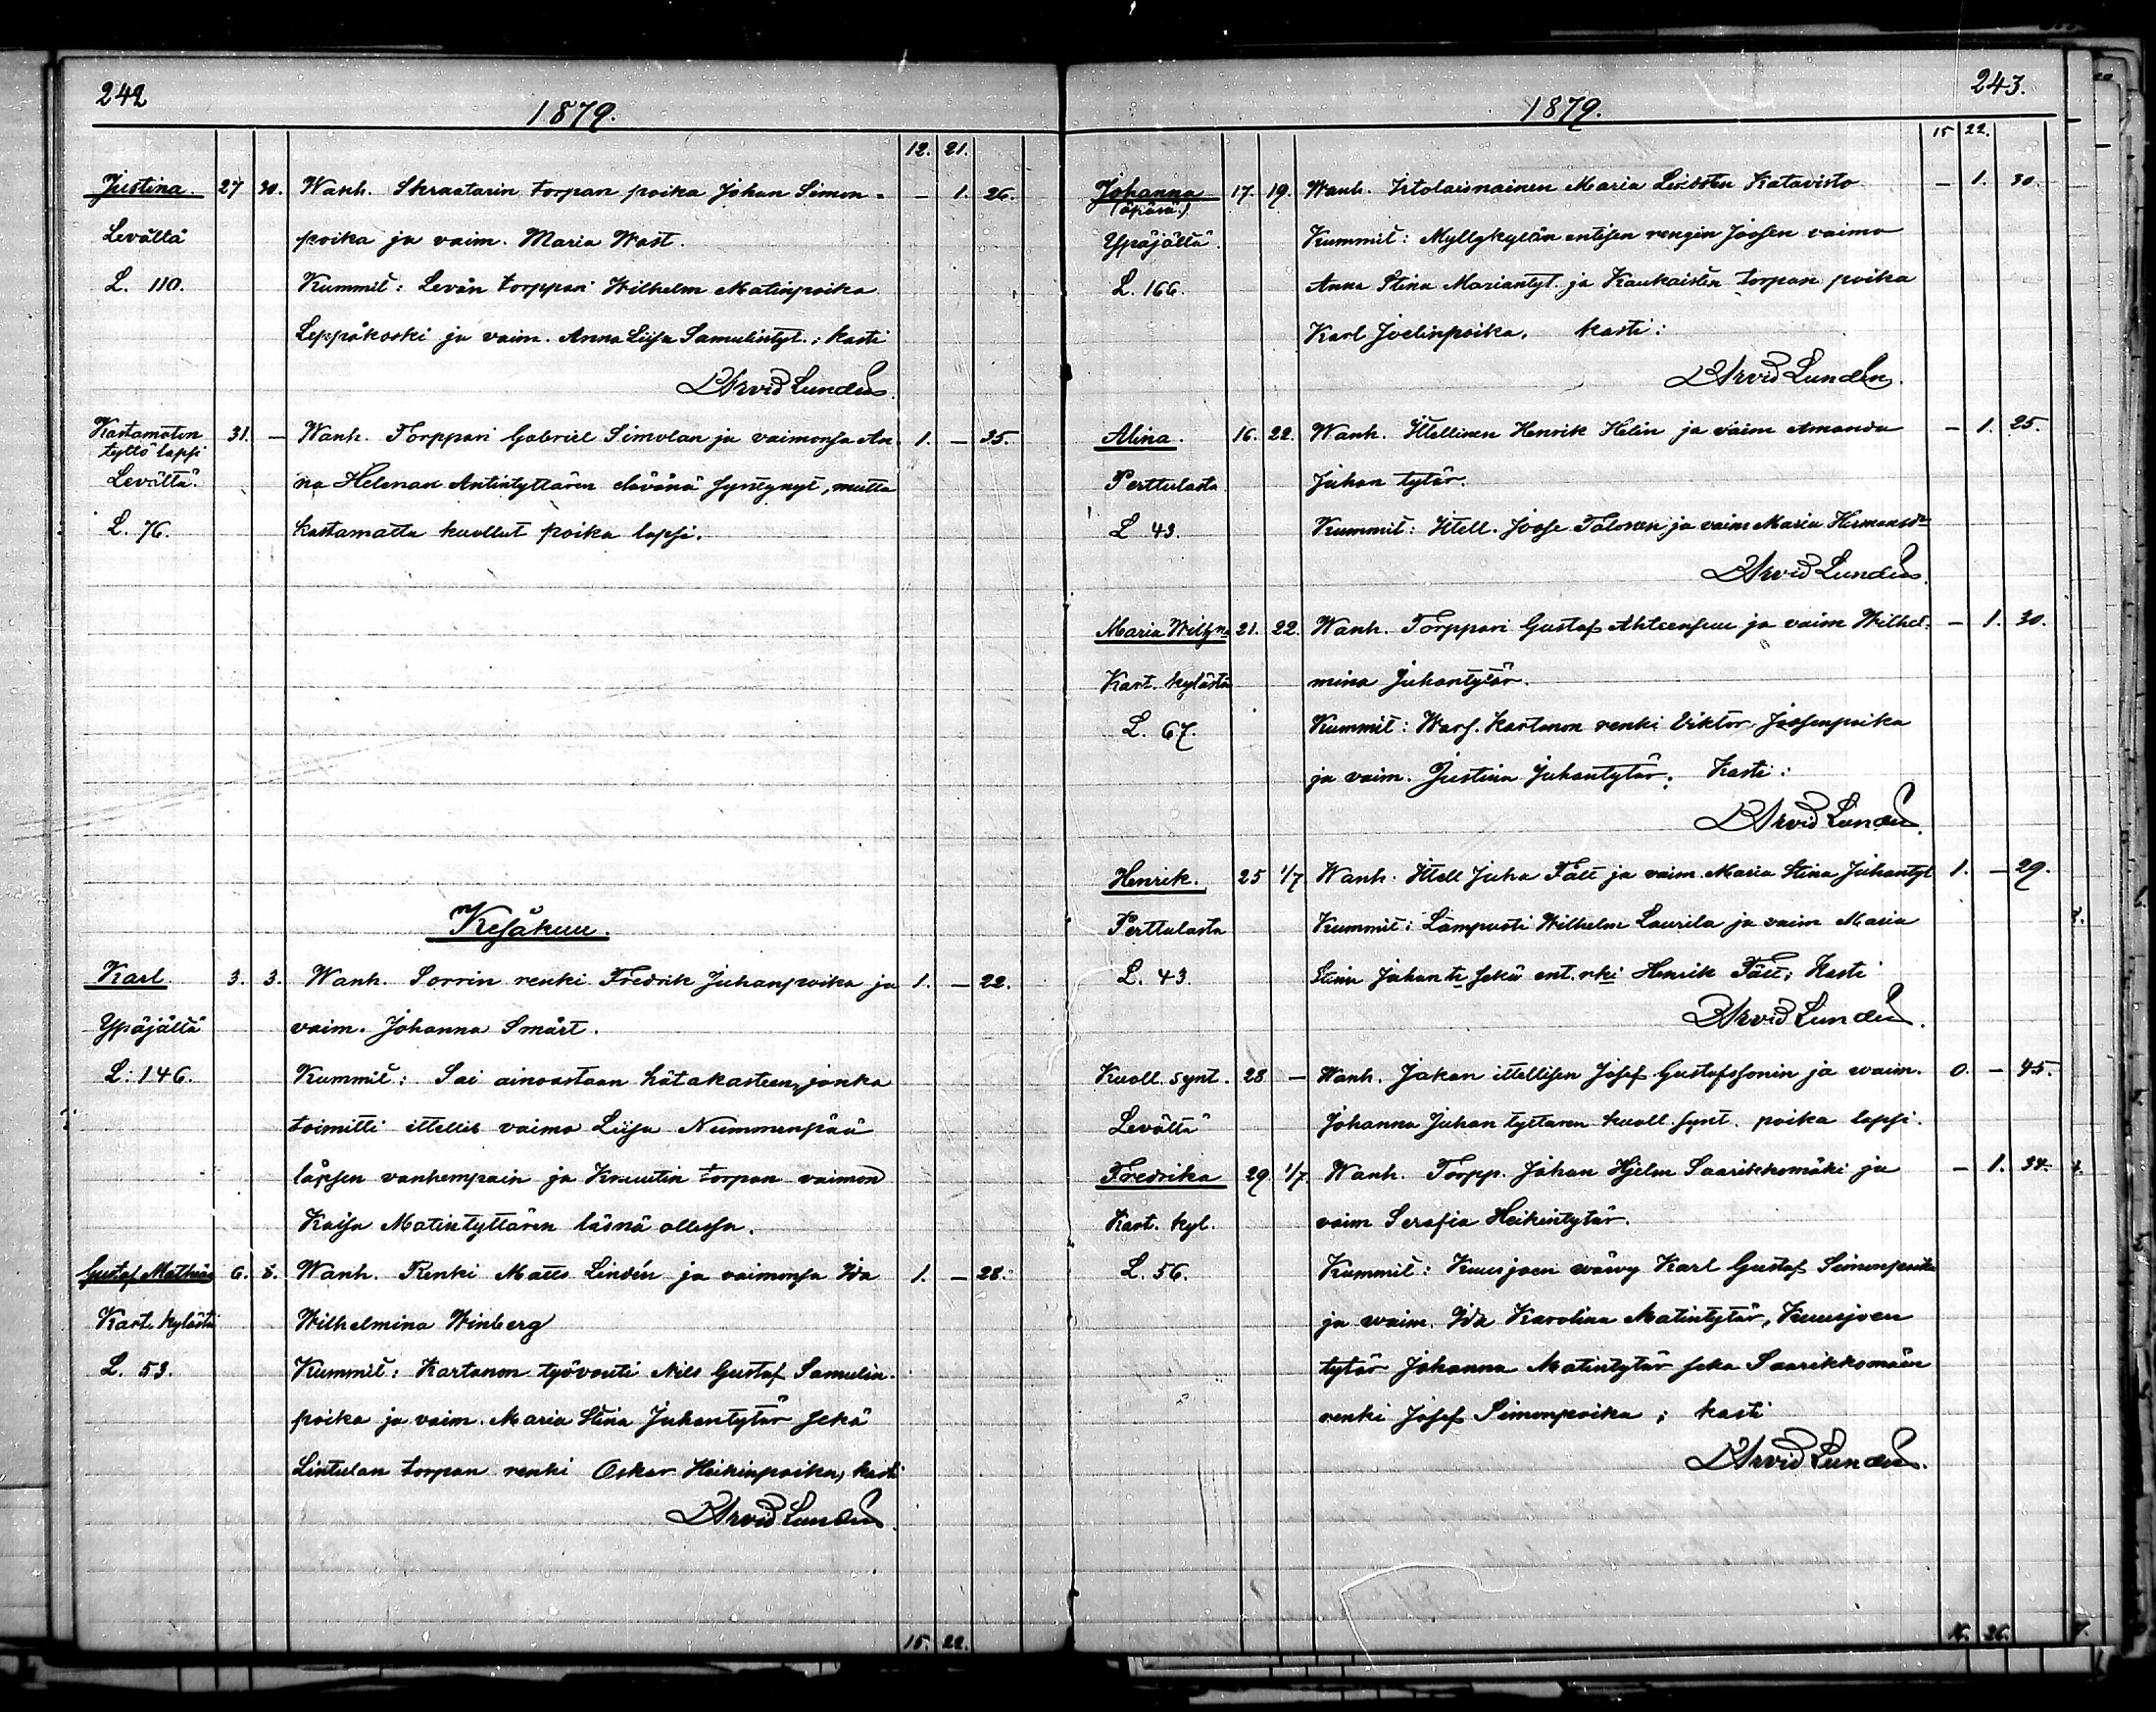 242
1879.
12. 21.
Justina. 27 30. Wanh. Skraatarin torpan poika Johan Simon= — 1. 26.
Levältä poika ja vaim. Maria Wast.
L. 110. Kummit: Levän torppari Wilhelm Matinpoika
Leppäkoski ja vaim. Anna Liisa Samulintyt.; kasti
Arvid Lundén
Kastamaton 31. — Wanh. Torppari Gabriel Simolan ja vaimonsa An- 1. — 35.
tyttö lapsi
Levältä. na Helenan Antintyttären elävänä syntynyt, mutta
L. 76. kastamatta kuollut poika lapsi.
Kesäkuu.
Karl. 3. 3. Wanh. Sorrin renki Fredrik Juhanpoika ja 1. — 22.
Ypäjältä vaim. Johanna Smärt.
L. 146. Kummit: Sai ainoastaan hätäkasteen, jonka
toimitti ittellis vaimo Liisa Nummenpää
lapsen vanhempain ja Knuutin torpan vaimon
Kaisa Matintyttären läsnä ollessa.
Gustaf Mathias 6. 8. Wanh. Renki Matts Lindén ja vaimonsa Ida 1. — 28.
Kart. kylästä Wilhelmina Winberg
L. 53. Kummit: Kartanon työvouti Nils Gustaf Samulin-
poika ja vaim. Maria Stina Juhantytär sekä
Lintulan torpan renki Oskar Heikinpoika, kasti
Arvid Lundén
15. 22.
243.
1879.
15 22.
Johanna 17. 19. Wanh. Itolaisnainen Maria Katavisto — 1. 30.
(äpärä.)
Ypäjältä. Kummit: Myllykylän entisen rengin Joosen vaimo
L. 166. Anna Stina Mariantyt. ja Kaukaisten torpan poika
Karl Joelinpoika. kasti:
Arvid Lundén.
Alina. 16. 22. Wanh. Ittellinen Henrik Helin ja vaim Amanda — 1. 25.
Perttulasta Juhan tytär.
L 43. Kummit: Ittell. Joose Talonen ja vaim Maria
Arvid Lundén.
Maria Wilhna 21. 22. Wanh. Torppari Gustaf Ahteensuu ja vaim Wilhel- — 1. 30.
Kart. kylästä mina Juhantytär.
L. 67. Kummit: Wars. Kartanon renki Viktor Joosenpoika
ja vaim. Justina Juhantytär. Kasti:
Arvid Lundén.
Henrik. 25 1/7 Wanh. Ittell Juha Fält ja vaim Maria Stina Juhantyt 1. — 29.
Perttulasta Kummit: Lampuoti Wilhelm Laurila ja vaim Maria
L. 43. Stina Juhan tr sekä ent. rki Henrik Fält; Kasti
Arvid Lundén.
Kuoll. synt. 28 — Wanh. Jakan ittellisen Josef Gustafssonin ja waim. 0. — 45.
Levältä Johanna Juhan tyttären kuoll. synt. poika lapsi.
Fredrika 29 1/7 Wanh. Torpp. Johan Hjelm Saarikkomäki ja — 1. 34.
Kart. kyl. vaim Serafia Heikintytär.
L. 56. Kummit: Kuusjoen wäwy Karl Gustaf Simonpoika
ja waim. Ida Karolina Matintytär, Kuusjoen
tytär Johanna Matintytär seka Saarikkomäen
renki Josef Simonpoika; kasti
Arvid Lundén.
16. 26.